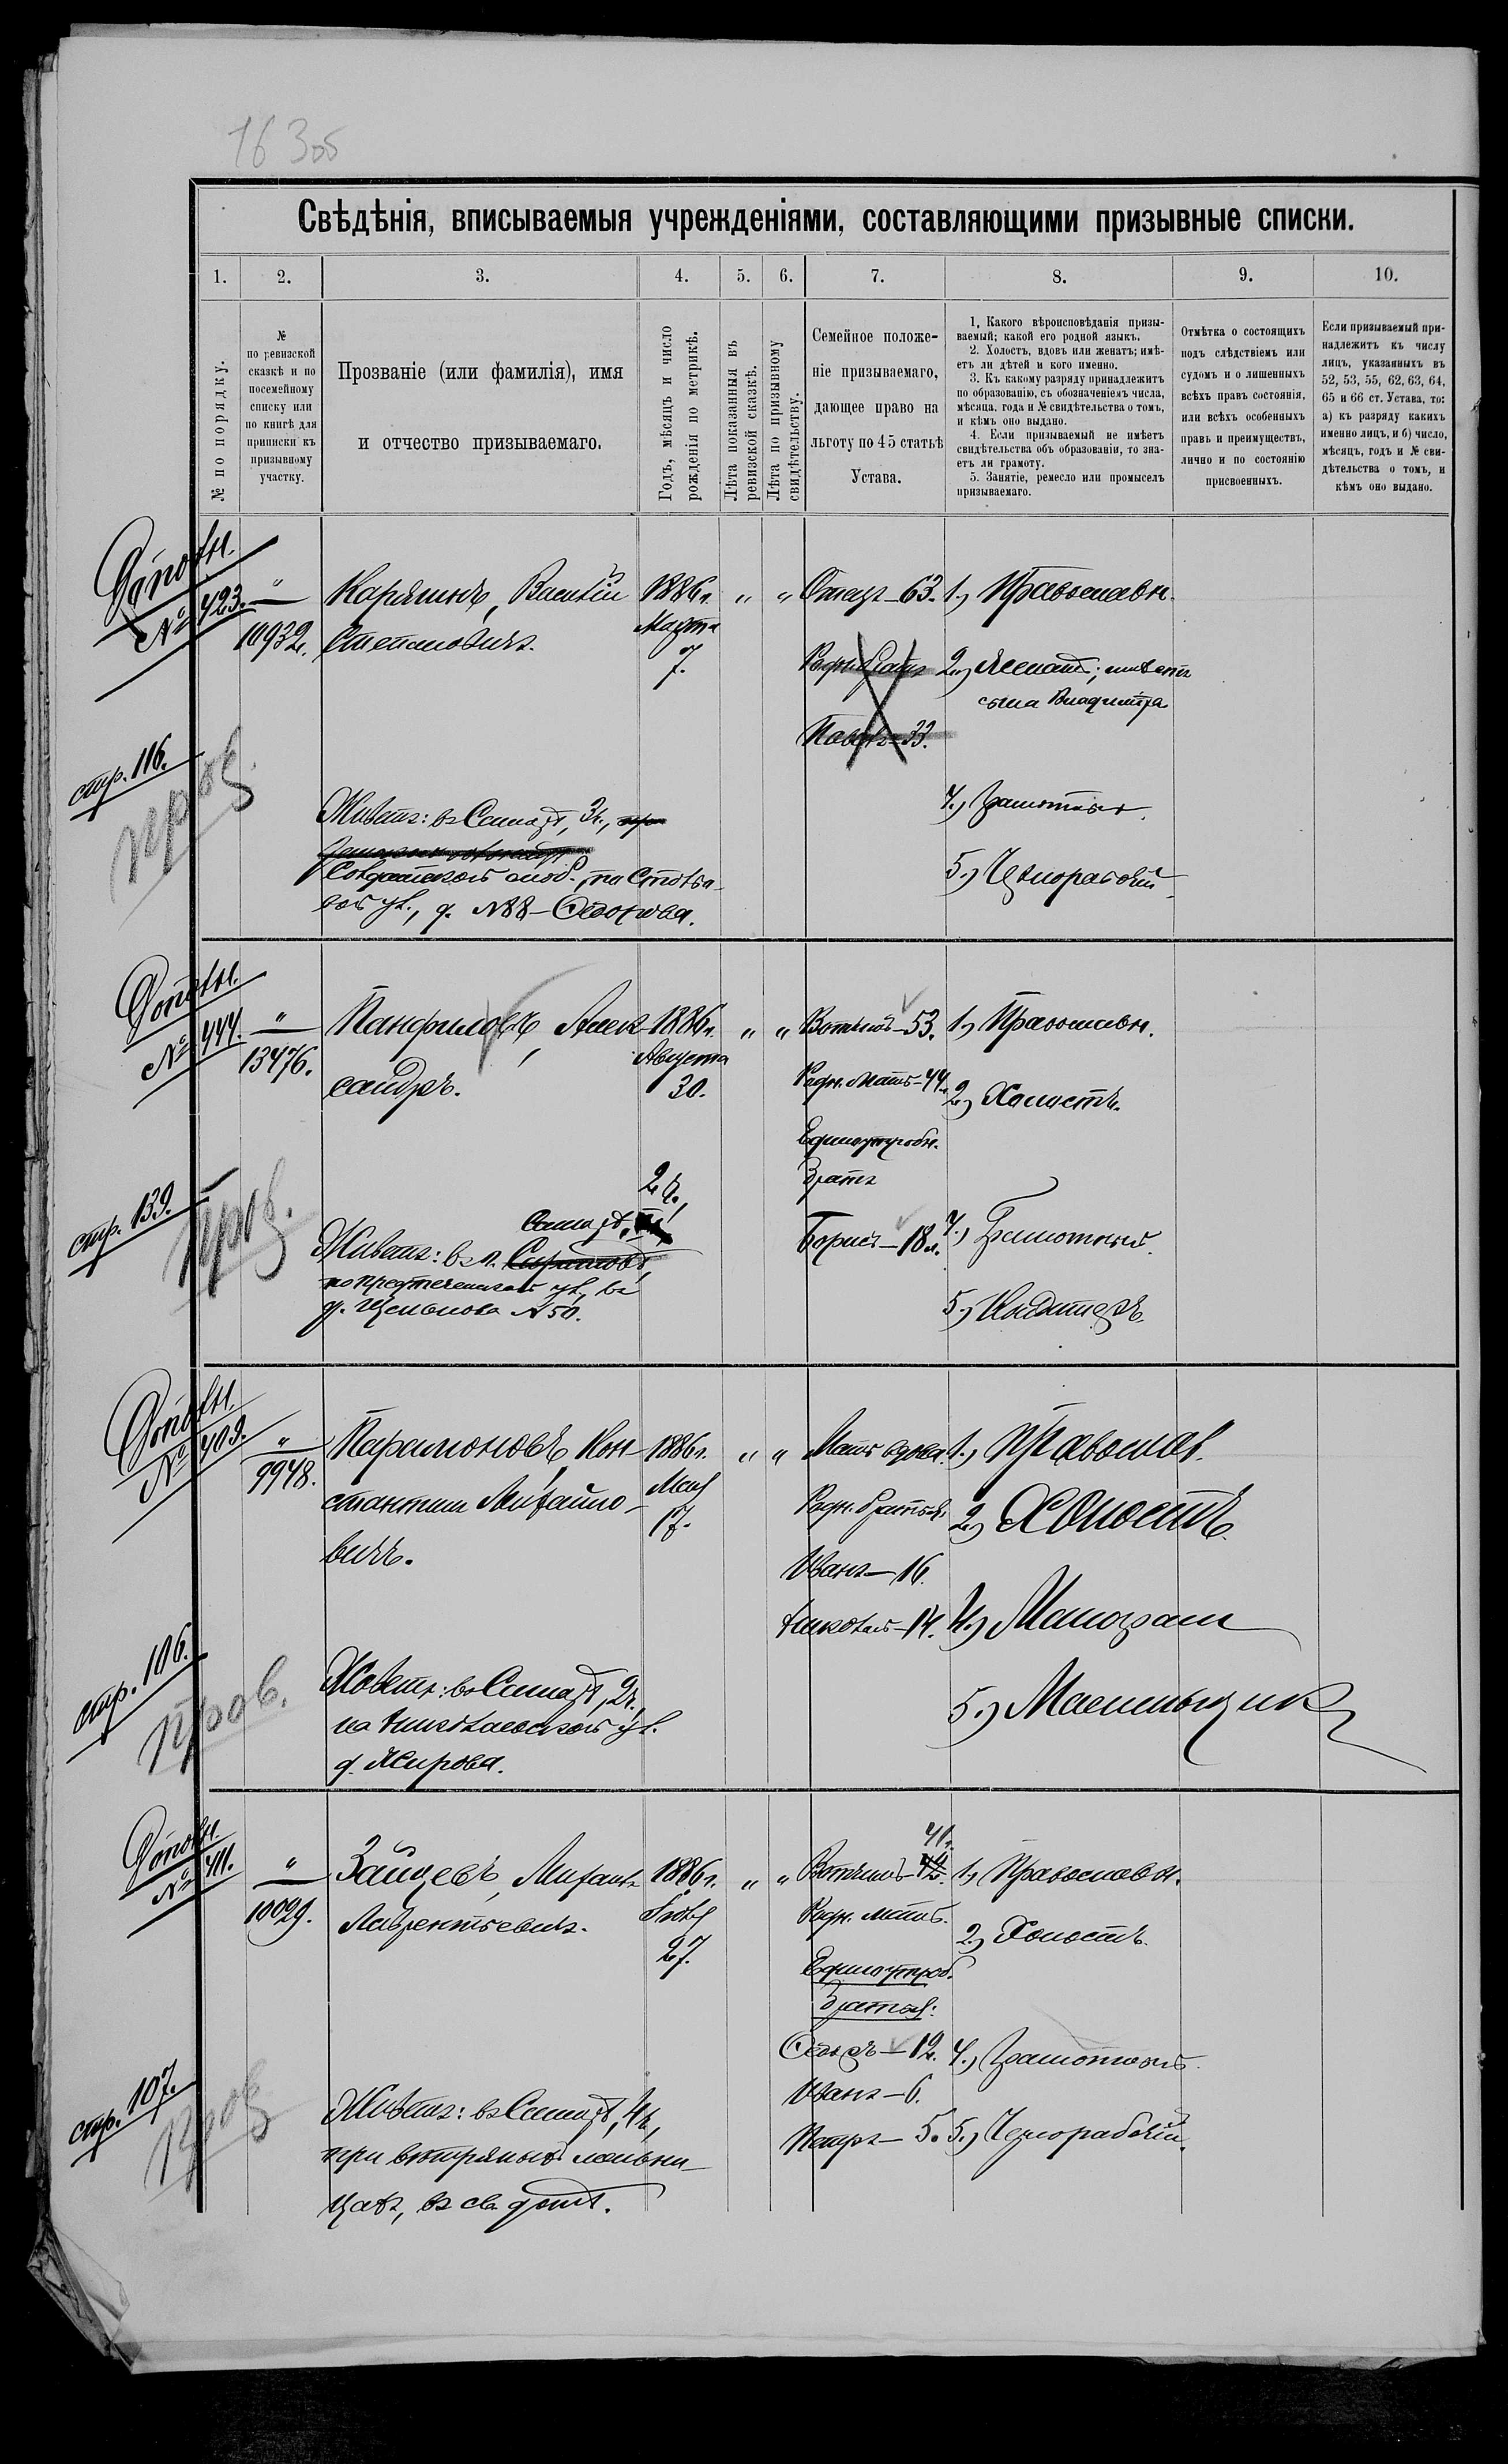 163об
Свѣдѣнія, вписываемыя учрежденіями, составляющими призывные списки.
1. 2. 3. 4. 5. 6. 7. 8. 9. 10.
№ по порядку.
№
по ревизской
сказкѣ и по
посемейному
списку или
по книгѣ для
приписки къ
призывному
участку.
Прозваніе (или фамилія), имя
и отчество призываемаго.
Годъ, мѣсяцъ и число
рожденія по метрикѣ.
Лѣта показанныя въ
ревизской сказкѣ.
Лѣта по призывному
свидѣтельству.
Семейное положе-
ніе призываемаго,
дающее право на
льготу по 45 статьѣ
Устава.
1. Какого вѣроисповѣданія призы-
ваемый; какой его родной языкъ.
2. Холостъ, вдовъ или женатъ; имѣ-
етъ ли дѣтей и кого именно.
3. Къ какому разряду принадлежитъ
по образованію, съ обозначеніемъ числа,
мѣсяца, года и № свидѣтельства о томъ,
и кѣмъ оно выдано.
4. Если призываемый не имѣетъ
свидѣтельства объ образованіи, то зна-
етъ ли грамоту.
5. Занятіе, ремесло или промыселъ
призываемаго.
Отмѣтка о состоящихъ
подъ слѣдствіемъ или
судомъ и о лишенныхъ
всѣхъ правъ состоянія,
или всѣхъ особенныхъ
правъ и преимуществъ,
лично и по состоянію
присвоенныхъ.
Если призываемый при-
надлежитъ къ числу
лицъ, указанныхъ въ
52, 53, 55, 62, 63, 64,
65 и 66 ст. Устава, то:
а) къ разряду какихъ
именно лицъ, и б) число,
мѣсяцъ, годъ и № сви-
дѣтельства о томъ, и
кѣмъ оно выдано.
Дополн.
№ 423.
стр. 116.
пров.
"
10932.
Карякинъ, Василій
Степановичъ.
1886 г.
Марта
7.
" "
Отецъ - 63.
Родн. братъ
Павелъ - 33.
1.) Православн.
2.) Женатъ; имѣетъ
сына Владиміра
4.) Грамотный.
5.) Чернорабочій.
Живетъ: въ Самарѣ, 3 ч.,
Солдатской слоб., по
ул., д. № 88 - Ѳедорова.
Дополн.
№ 444.
стр. 139.
пров.
"
13476.
Панфиловъ, Алек-
сандръ.
1886 г.
Августа
30.
" "
Вотчимъ - 53.
Родн. мать - 44.
Единоутробн.
братъ
Борисъ - 18 л.
1.) Православн.
2.) Холостъ.
4.) Грамотный.
5.)
2 ч.,
Самарѣ,
Живетъ: въ г. Саратовѣ,
по Предтеченской ул., въ
д. № 50.
Дополн.
№ 409.
стр. 106.
пров.
"
9948.
Парамоновъ, Кон-
стантинъ Михайло-
вичъ.
1886 г.
Мая
17.
" "
Мать вдова.
Родн. братья:
Иванъ - 16.
Николай - 14.
1.) Православ.
2.) Холостъ.
4.) Малограм
5.) Масленьщик
Живетъ: въ Самарѣ, 2 ч.
на Николаевской ул.
д. Жирова.
Дополн.
№ 411.
стр. 107.
пров.
"
10029.
Зайцевъ, Михаилъ
Лаврентьевичъ.
1886 г.
Іюля
27.
" "
41.
Вотчимъ - 42.
Родн. мать.
Единоутроб.
братья:
Ѳедоръ - 12.
Иванъ - 6.
Петръ - 5.
1.) Православн.
2.) Холостъ.
4.) Грамотный.
5.) Чернорабочій.
Живетъ: въ Самарѣ, 4 ч.,
при вѣтряныхъ мельни-
цахъ, въ св. домѣ.